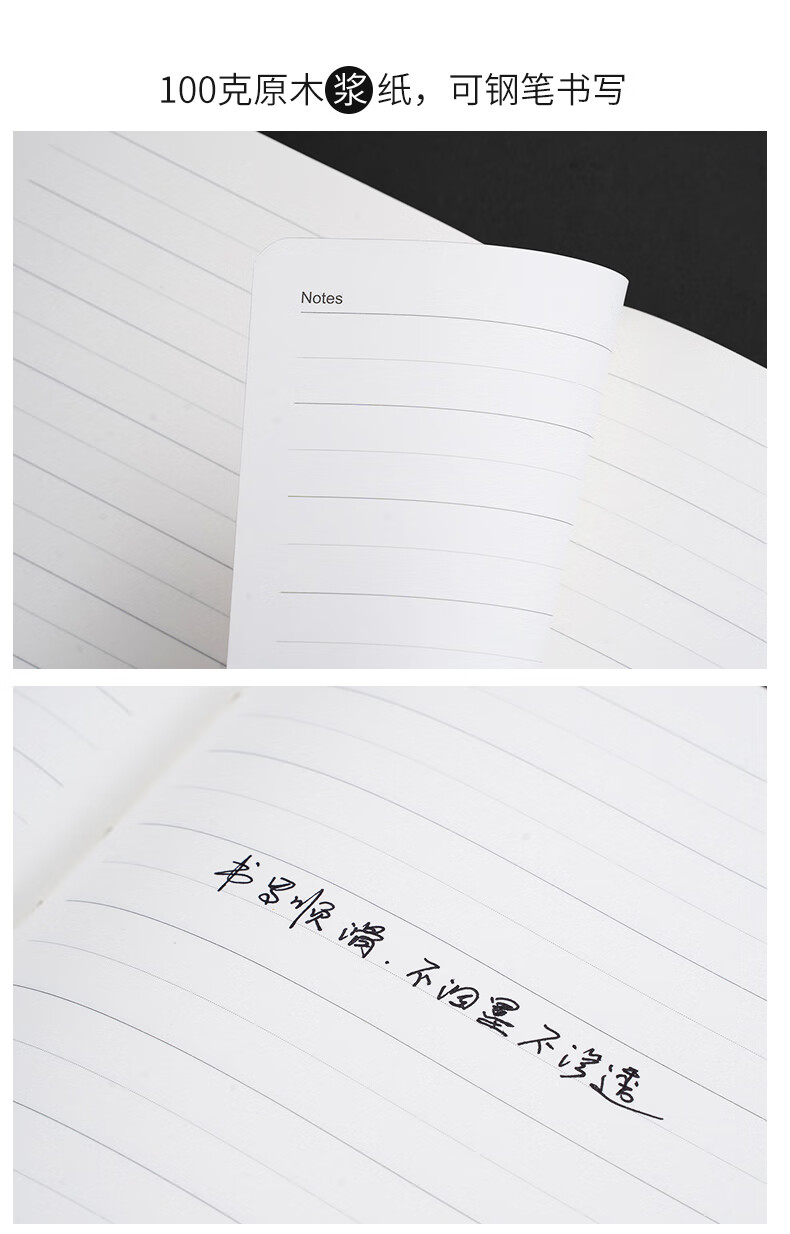 100克原木浆纸，可钢笔书写
Notes
书写顺滑.不洇墨不渗透